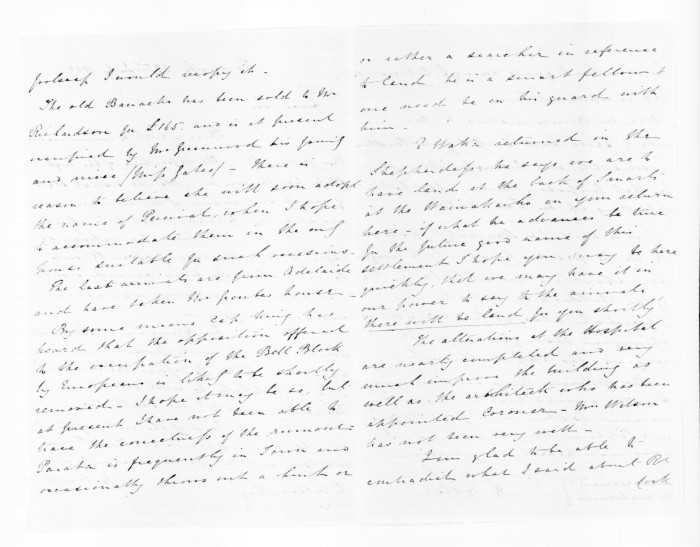 foolscap I would recopy it -
The old Barracks has been sold to Mr
Richardson for £165 and is at present
occupied by Mr Greenwood his young
and niece (Miss Gales) - There is
reason to believe she will soon adopt
the name of Percival, when I hope
to accommodate them in the only
house suitable for such occasions.
The last arrivals are from Adelaide
and have taken Mr house -
By some means Capt King has
heard that the opposition offered
to the occupation of the Bell Block
by Europeans is likely to be shortly
removed - I hope it may be so, but
at present I have not been able to
trace the correctness of the rumour -
Parata is frequently in Town and
occasionally throws out a hint or
or rather a searcher in reference
to land. he is a smart fellow &
one need be on his guard with
him -
E Watia returned in the
Shepherdess he says we are to
have land at the back of Smarts
at the Waiwakaiho on your return
here - if what he advances be true
for the future good name of this
settlement I hope you may be here
quickly, that we may have it in
our power to say to the arrivals
there will be land for you shortly
The alterations at the Hospital
are nearly completed and very
much improve the building as
well as the architect who has been
appointed Coroner - Mrs Wilson
has not been very well -
I am glad to be able to
contradict what I said about
Cork